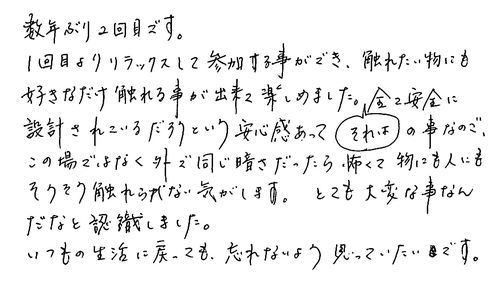 数年ぶり2回目です。
1回目よりリラックスして参加する事ができ、触れたい物にも
好きなだけ触れる事が出来て楽しめました。全て安全に
設計されているだろうという安心感あって それは の事なので、
この場ではなく外で同じ暗さだったら怖くて物にも人にも
そうそう触れられない気がします。 とても大変な事なん
だなと認識しました。
いつもの生活に戻っても、忘れないよう思っていたいです。